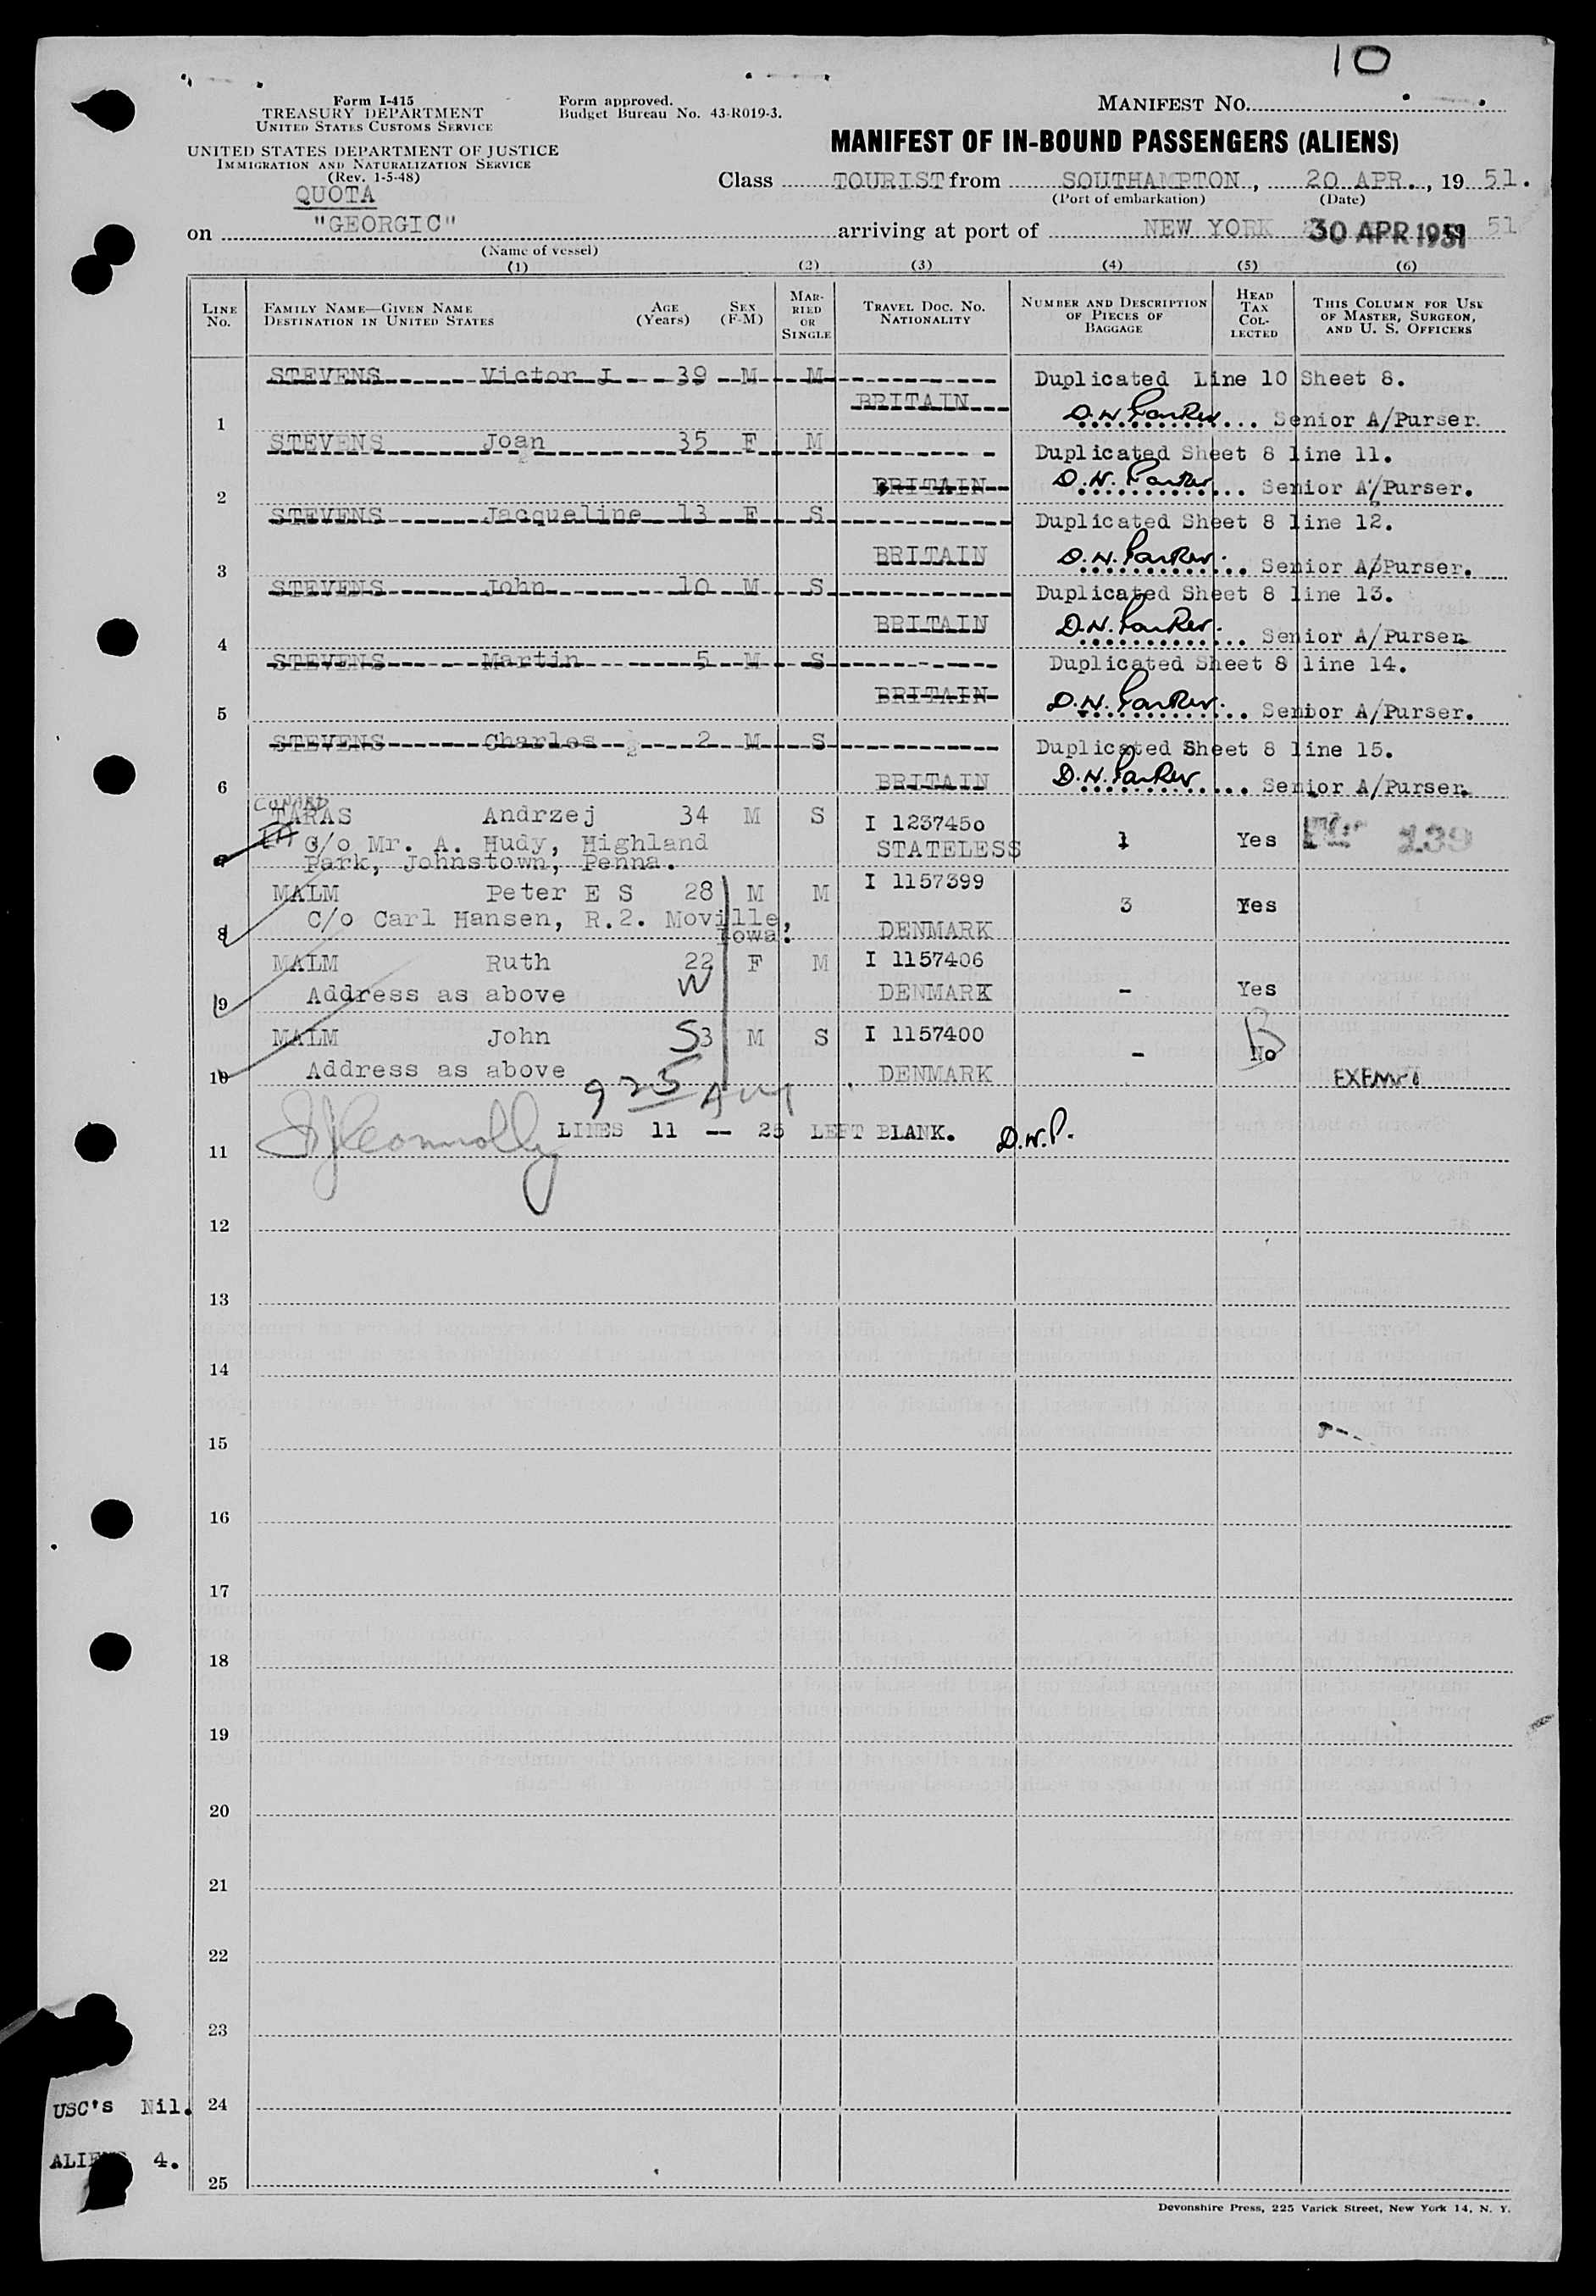 10
Form I-415
TREASURY DEPARTMENT
UNITED STATES CUSTOMS SERVICE
UNITED STATES DEPARTMENT OF JUSTICE
IMMIGRATION AND NATURALIZATION SERVICE
(Rev. 1-5-48)
QUOTA
Form approved.
Budget Bureau No. 43-R019-3.
MANIFEST NO.
MANIFEST OF IN-BOUND PASSENGERS (ALIENS)
Class TOURIST from SOUTHAMPTON, 20 APR., 19 51.
(Port of embarkation) (Date)
on "GEORGIC" arriving at port of NEW YORK 30 APR 1951 51
(Name of vessel)
(1) (2) (3) (4) (5) (6)
LINE NO.
FAMILY NAME—GIVEN NAME
DESTINATION IN UNITED STATES
AGE (Years)
SEX (F-M)
MARRIED OR SINGLE
TRAVEL DOC. NO.
NATIONALITY
NUMBER AND DESCRIPTION OF PIECES OF BAGGAGE
HEAD TAX COLLECTED
THIS COLUMN FOR USE OF MASTER, SURGEON, AND U. S. OFFICERS
STEVENS Victor J 39 M M Duplicated Line 10 Sheet 8.
1 BRITAIN D.N. Parker Senior A/Purser.
STEVENS Joan 35 F M Duplicated Sheet 8 line 11.
2 BRITAIN D.N. Parker Senior A/Purser.
STEVENS Jacqueline 13 F S Duplicated Sheet 8 line 12.
3 BRITAIN D.N. Parker Senior A/Purser.
STEVENS John 10 M S Duplicated Sheet 8 line 13.
4 BRITAIN D.N. Parker Senior A/Purser.
STEVENS Martin 5 M S Duplicated Sheet 8 line 14.
5 BRITAIN D.N. Parker Senior A/Purser.
STEVENS Charles 2 M S Duplicated Sheet 8 line 15.
6 BRITAIN D.N. Parker Senior A/Purser.
TARAS Andrzej 34 M S I 1237450
C/o Mr. A. Hudy, Highland STATELESS 1 Yes 139
7 Park, Johnstown, Penna.
MALM Peter E S 28 M M I 1157399
C/o Carl Hansen, R.2. Moville, 3 Yes
8 Iowa. DENMARK
MALM Ruth 22 F M I 1157406
9 Address as above W DENMARK - Yes
MALM John 53 M S I 1157400 - No B
10 Address as above DENMARK EXEMPT
9 25 AM
LINES 11 -- 25 LEFT BLANK. D.N.P.
JJConnolly
11
12
13
14
15
16
17
18
19
20
21
22
23
USC's Nil. 24
ALIENS 4.
25
Devonshire Press, 225 Varick Street, New York 14, N. Y.